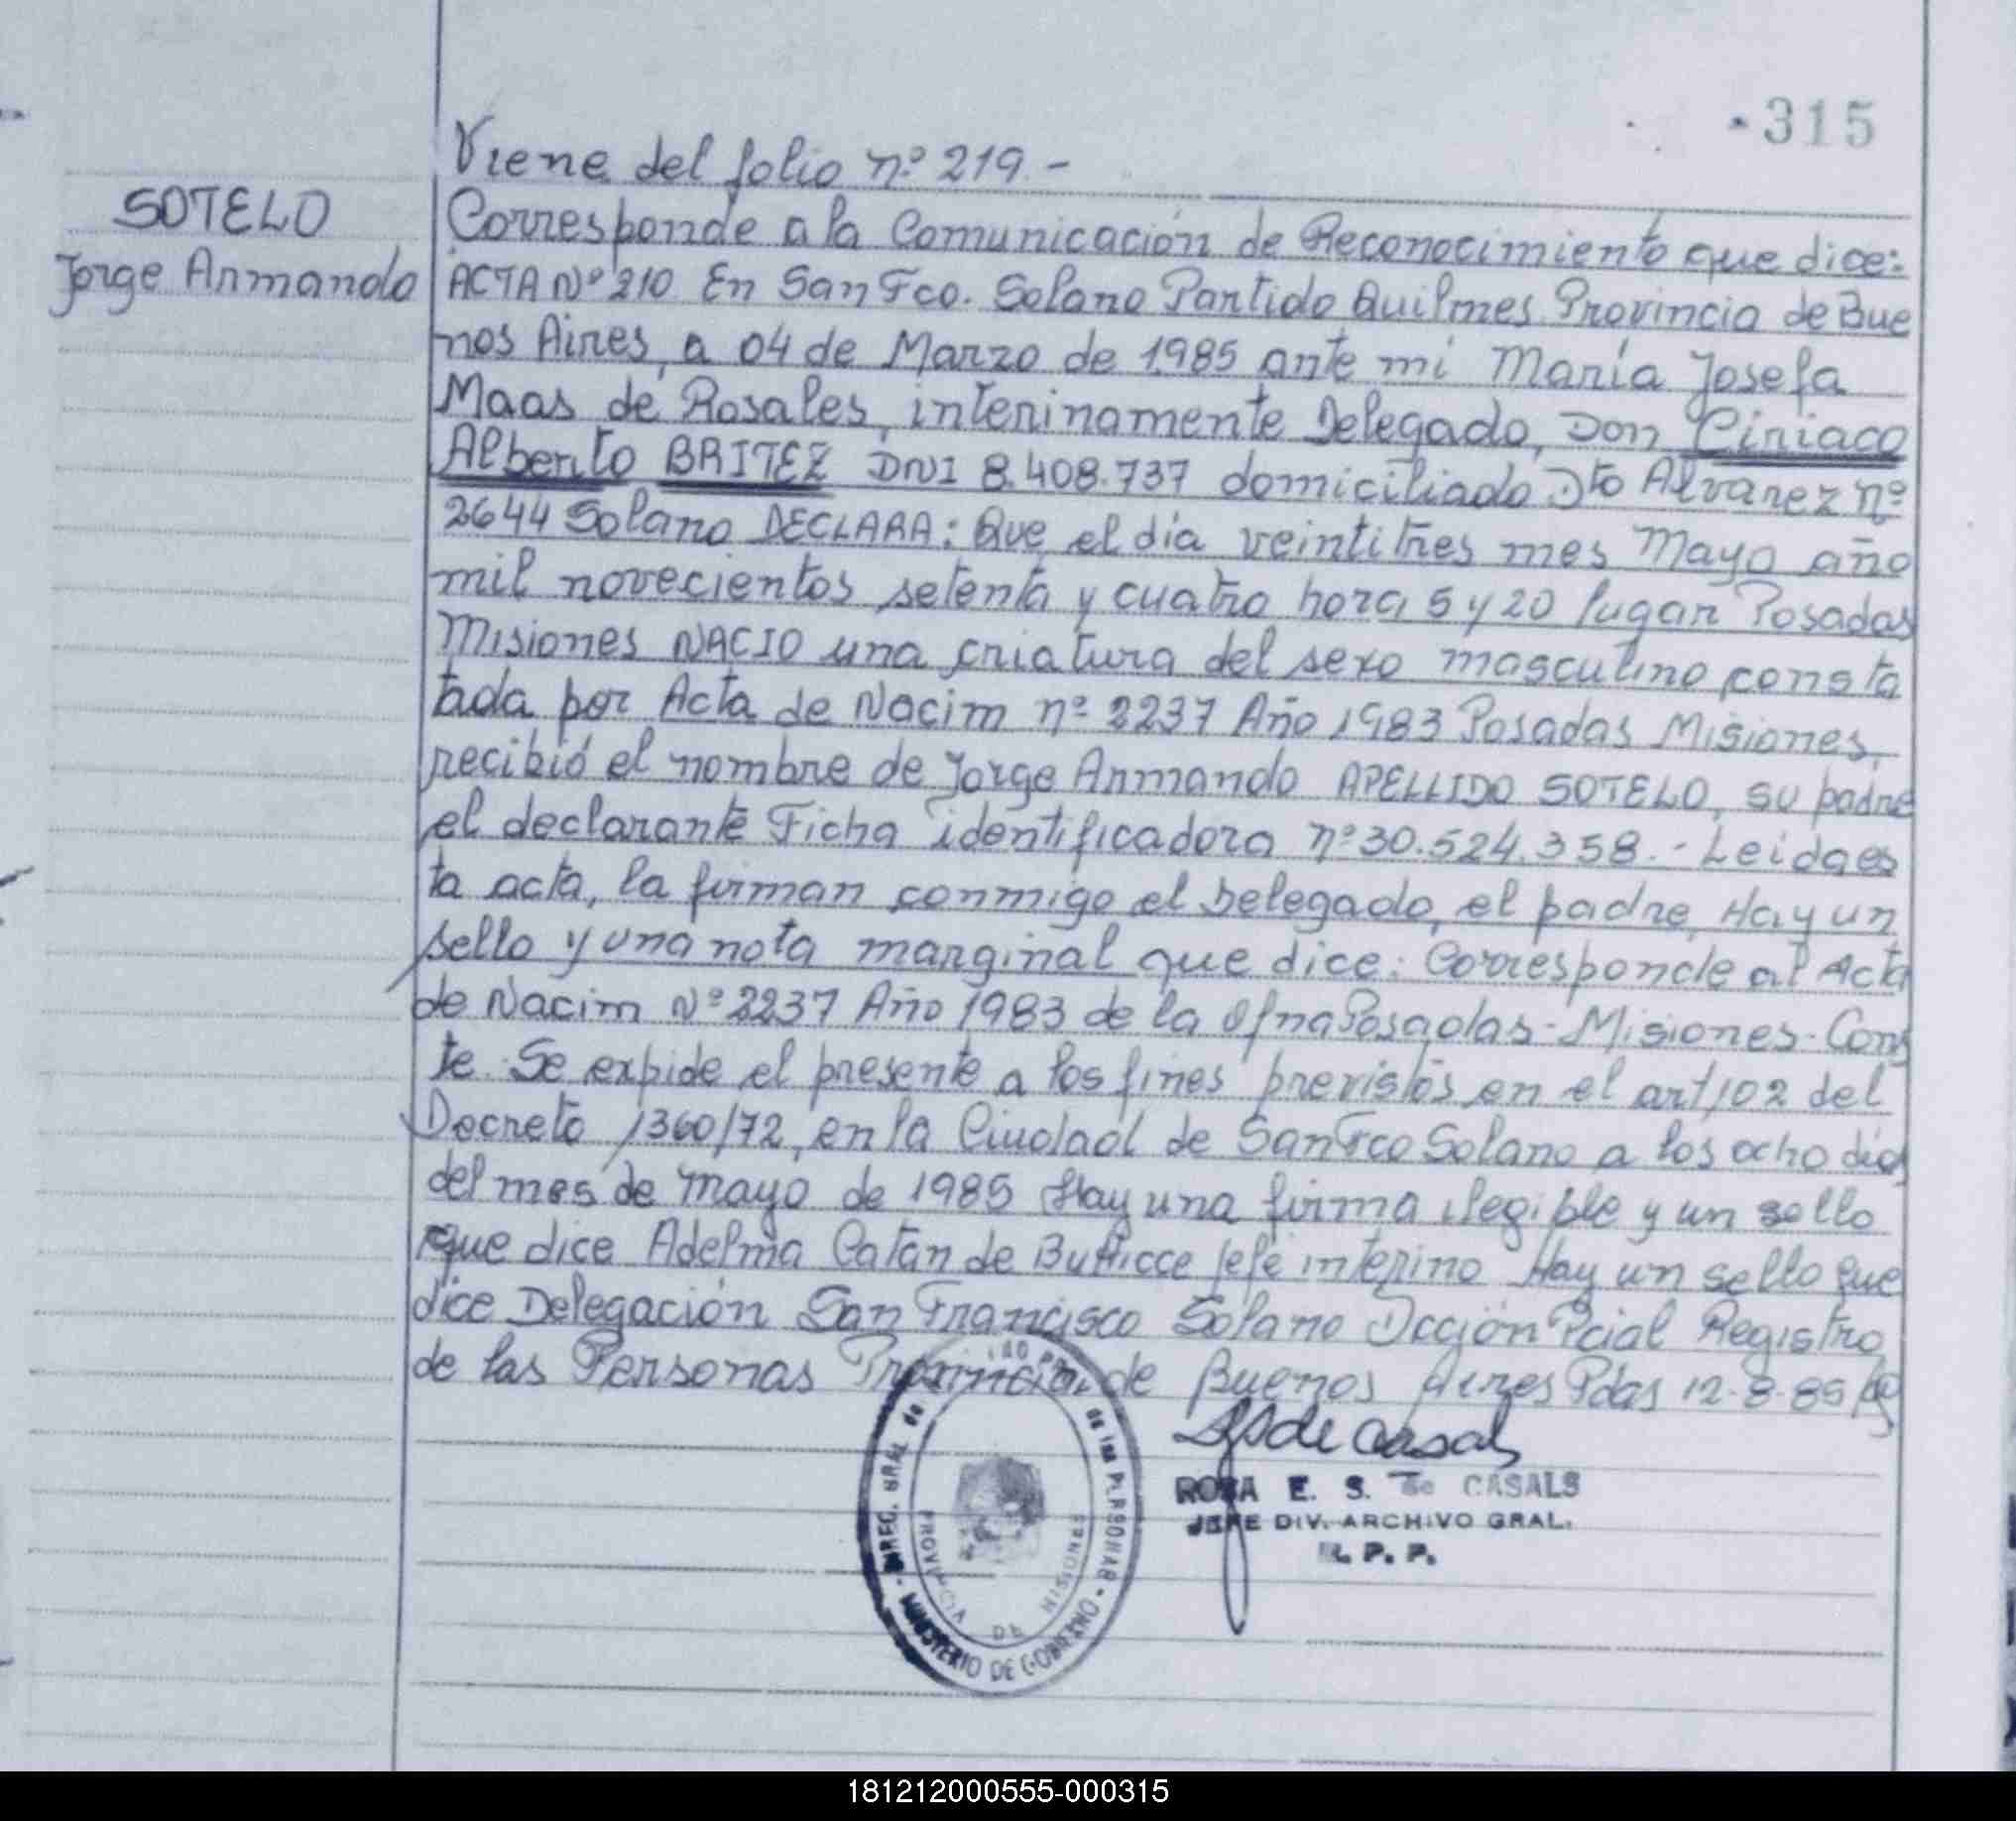 315
Viene del folio n.º 219.-
SOTELO
Jorge Armando
Corresponde a la Comunicación de Reconocimiento que dice:
ACTA Nº 210 En San Fco. Solano Partido Quilmes Provincia de Bue
nos Aires, a 04 de Marzo de 1985 ante mi María Josefa
Maas de Rosales, interinamente Delegado, Don Ciriaco
Alberto BRITEZ DNI 8.408.737 domiciliado Dto Alvarez nº
2644 Solano DECLARA: Que el día veintitres mes Mayo año
mil novecientos setenta y cuatro hora 5 y 20 lugar Posadas
Misiones NACIO una criatura del sexo masculino consta
tada por Acta de Nacim nº 2237 Año 1983 Posadas Misiones,
recibió el nombre de Jorge Armando APELLIDO SOTELO, su padre
el declarante Ficha identificadora nº 30.524.358.- Leida es
ta acta, la firman conmigo el Delegado, el padre, Hay un
sello y una nota marginal que dice: Corresponde al Acta
de Nacim Nº 2237 Año 1983 de la Ofna Posadas - Misiones. Cons
te. Se expide el presente a los fines previstos en el art 102 del
Decreto 1360/72, en la Ciudad de San Fco Solano a los ocho días
del mes de Mayo de 1985 Hay una firma ilegible y un sello
que dice Adelma Catán de Jefe interino Hay un sello que
dice Delegación San Francisco Solano Dcción Pcial Registro
de las Personas Provincia de Buenos Aires Pdas 12-8-85
de Casals
ROSA E. S. De CASALS
JEFE DIV. ARCHIVO GRAL.
R. P. P.
DIREC. GRAL de de las PERSONAS - MINISTERIO DE GOBIERNO -
PROVINCIA DE MISIONES
181212000555-000315